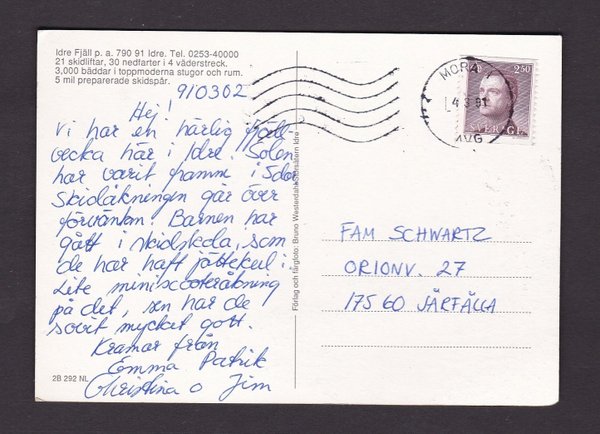 Idre Fjäll p. a. 790 91 Idre. Tel. 0253-40000
21 skidliftar, 30 nedfarter i 4 väderstreck.
3,000 bäddar i toppmoderna stugor och rum.
5 mil preparerade skidspår.
910302
Hej!
Vi har en härlig fjäll-
vecka här i Idre. Solen
har varit framme i 5 dar
Skidåkningen går över
förväntan. Barnen har
gått i skidskola, som
de har haft jättekul i.
Lite miniscooteråkning
på det, sen har de
sovit mycket gott.
Kramar från
Emma Patrik
Christina o Jim
2B 292 NL
Förlag och färgfoto: Bruno Westerdahl, Idre
MORA
4 3 91
AVG
2.50
SVERIGE
FAM SCHWARTZ
ORIONV. 27
175 60 JÄRFÄLLA